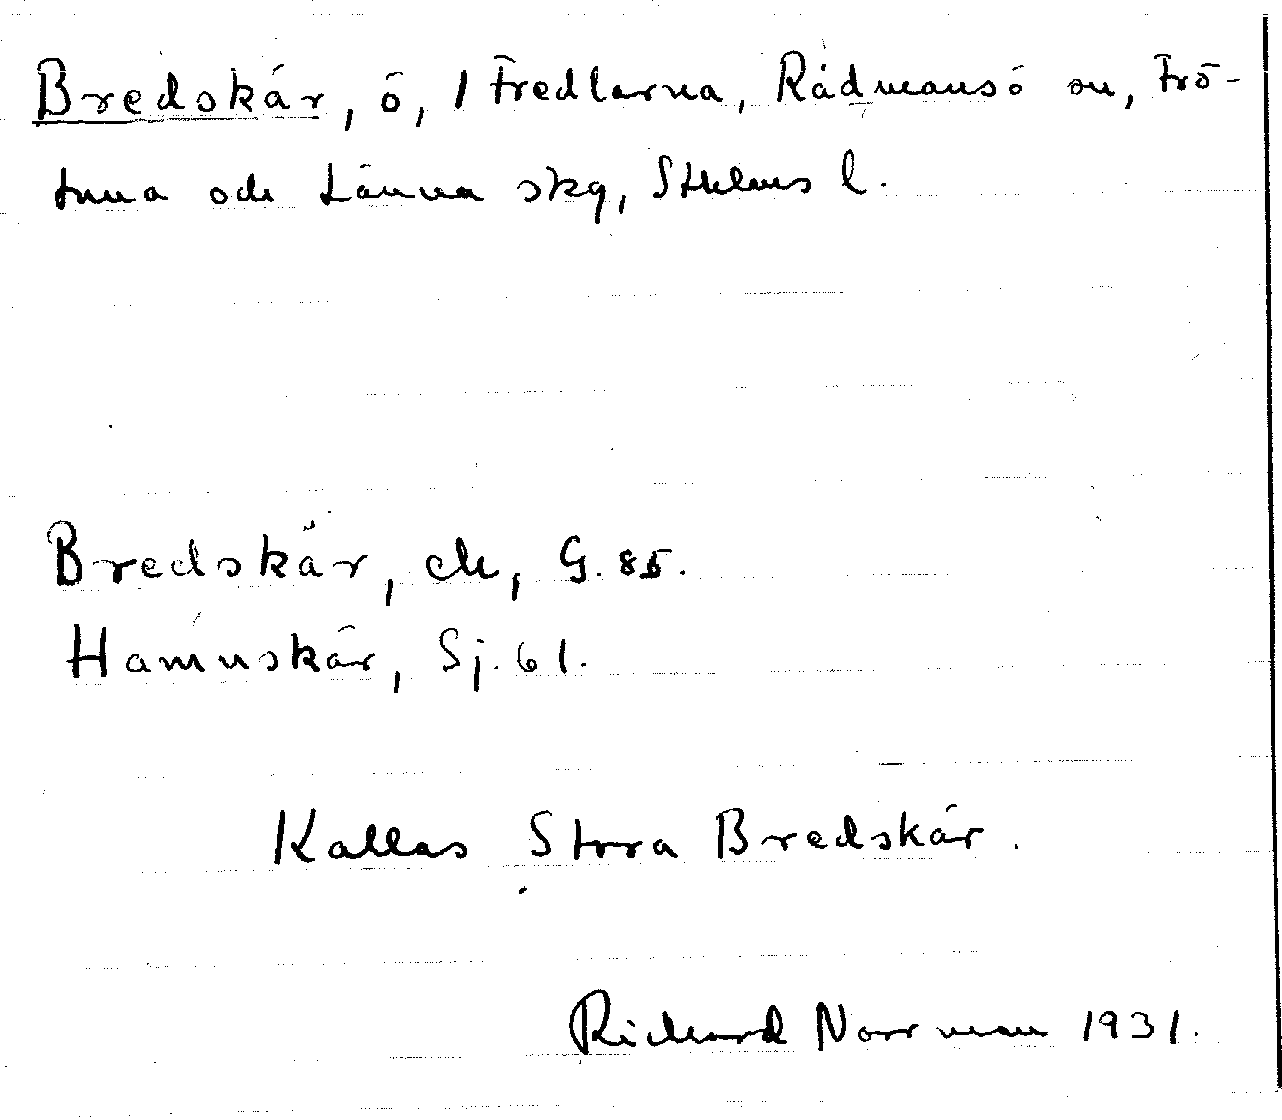 Bredskär, ö, / Fredlarna, Rådmansö sn, Frö-
tuna och Länna skg, Sthlms l.
Bredskär, ch, G. 85.
Hamnskär, Sj. 61.
Kallas Stora Bredskär.
Richard Norrman 1931.